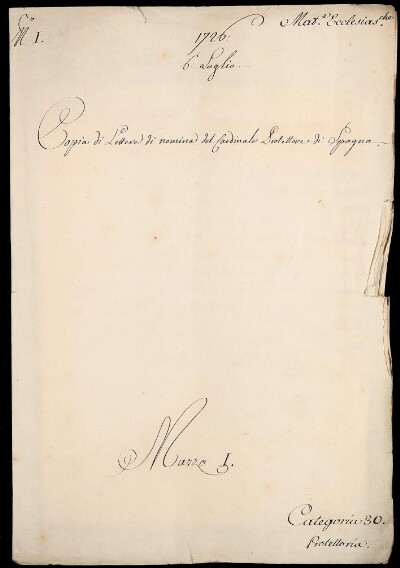 Mat.e Ecclesias.che
N.º 1.
1726.
6 Luglio.
Copia di Lettere di nomina del Cardinale Protettore di Spagna.
Mazzo 1.
Categoria 30.
Protettoria.